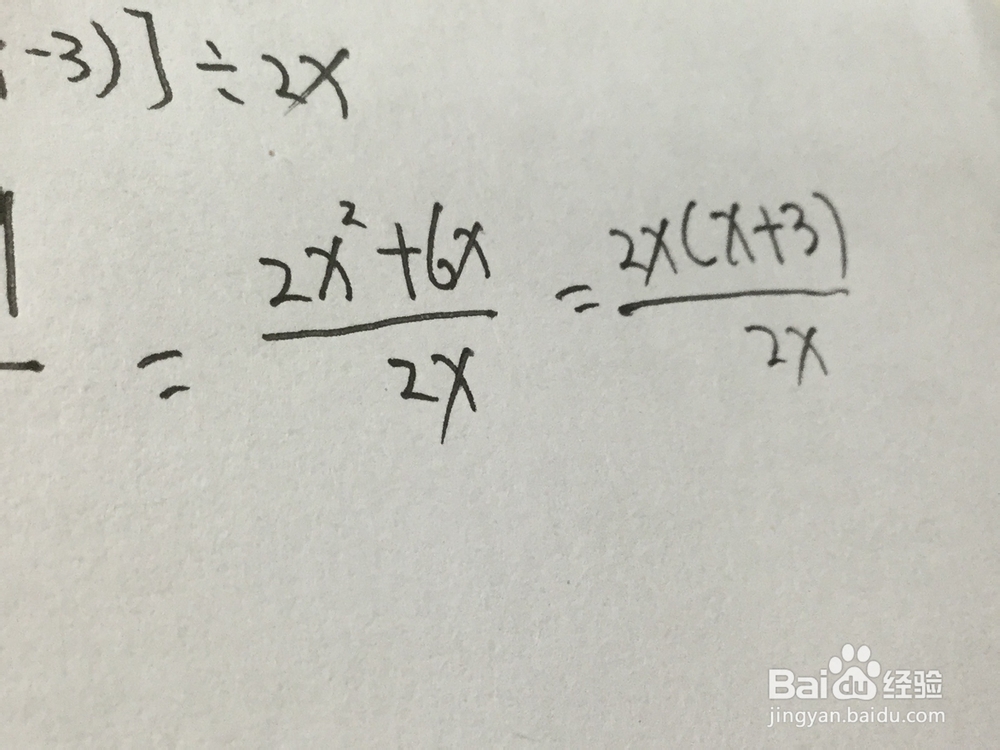 -3)] ÷ 2x
= (2x² + 6x)/(2x) = (2x(x+3))/(2x)
Baidu 经验
jingyan.baidu.com